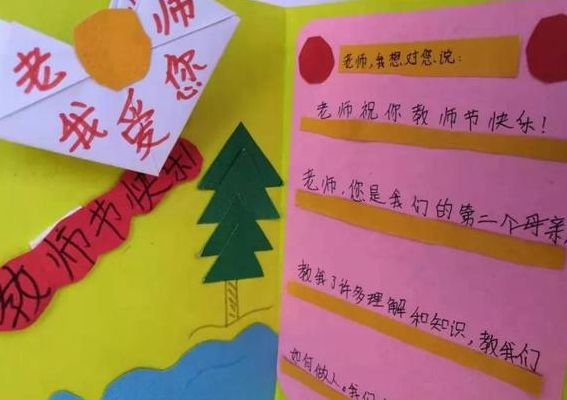 老师
我爱您
教师节快乐
老师,我想对您说:
老师祝你教师节快乐!
老师,您是我们的第二个母亲
教我了许多理解和知识,教我们
如何做人。我们